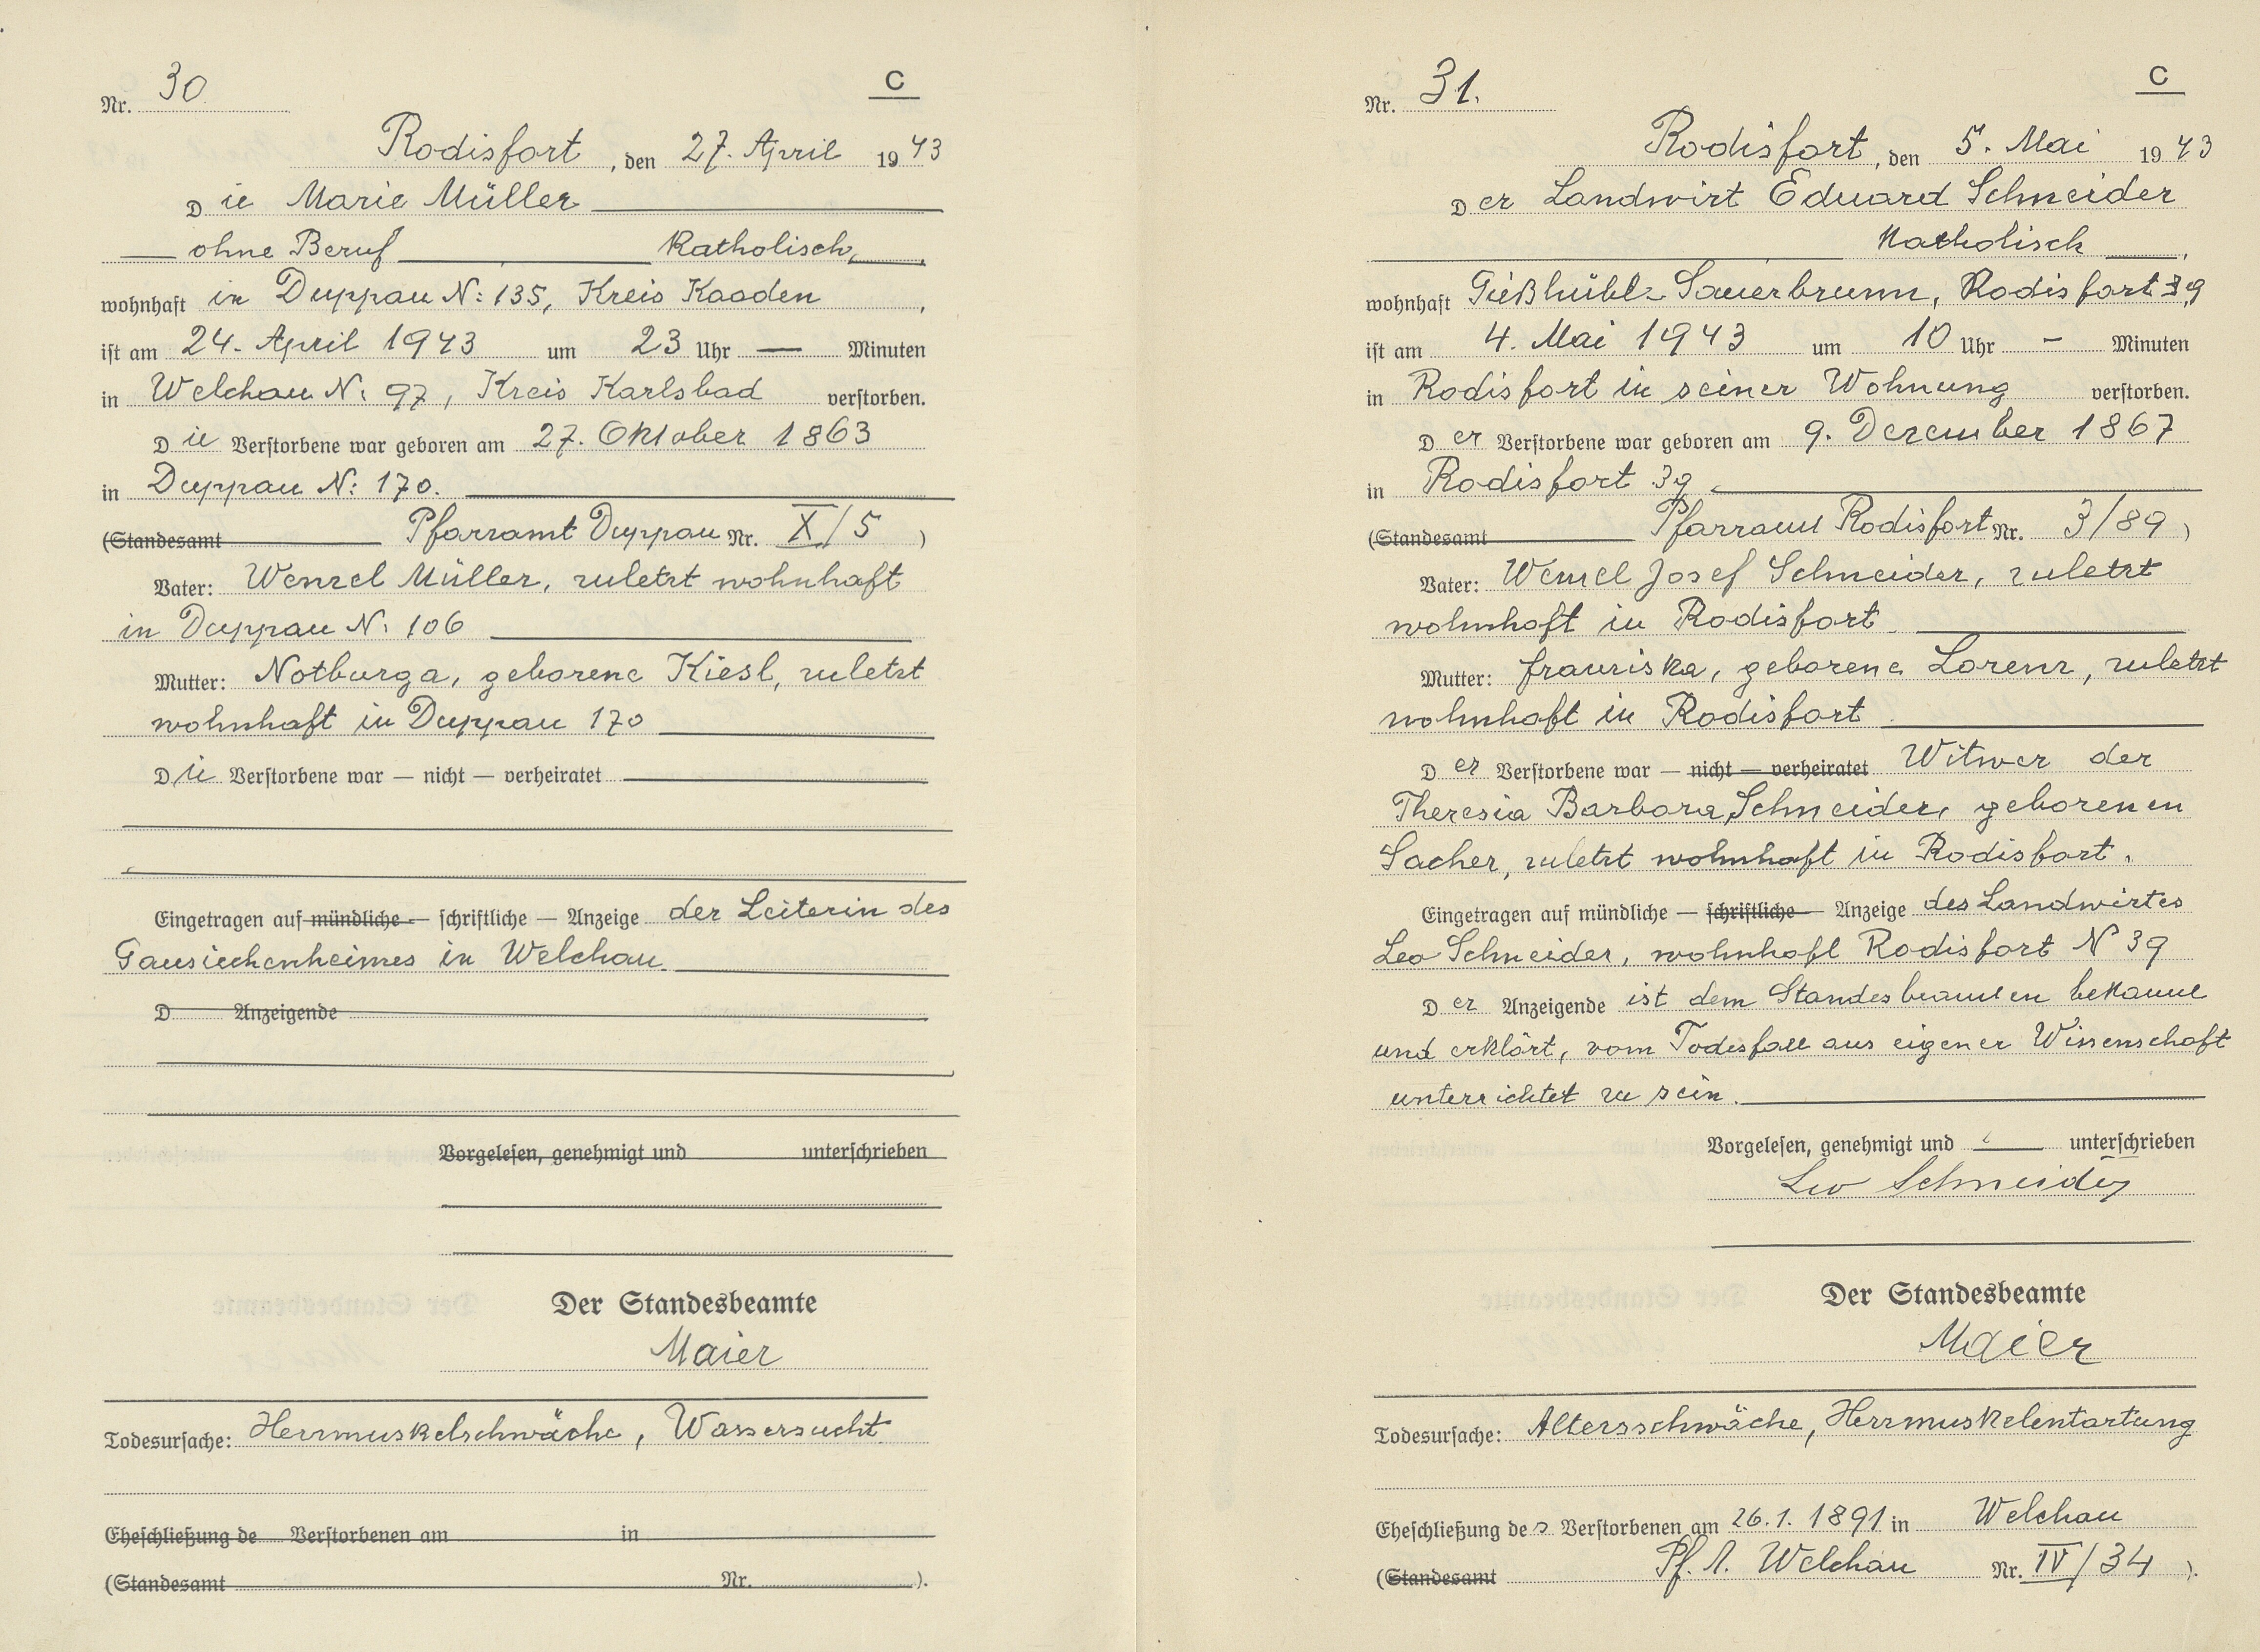 Nr. 30
C
Rodisfort, den 27. April 1943
Die Marie Müller
ohne Beruf Katholisch,
wohnhaft in Duppau N: 135, Kreis Kaaden,
ist am 24. April 1943 um 23 Uhr — Minuten
in Welchau N: 97, Kreis Karlsbad verstorben.
Die Verstorbene war geboren am 27. Oktober 1863
in Duppau N: 170.
(Standesamt Pfarramt Duppau Nr. X/5)
Vater: Wenzel Müller, zuletzt wohnhaft
in Duppau N: 106
Mutter: Notburga, geborene Kiesl, zuletzt
wohnhaft in Duppau 170
Die Verstorbene war — nicht — verheiratet
Eingetragen auf mündliche — schriftliche — Anzeige der Leiterin des
Gausiechenheimes in Welchau.
D Anzeigende
Vorgelesen, genehmigt und unterschrieben
Der Standesbeamte
Maier
Todesursache: Herzmuskelschwäche, Wassersucht
Eheschließung de Verstorbenen am in
(Standesamt Nr. ).
Nr. 31.
C
Rodisfort, den 5. Mai 1943
Der Landwirt Eduard Schneider
Katholisch,
wohnhaft Gießhübl-Sauerbrunn, Rodisfort 39
ist am 4. Mai 1943 um 10 Uhr — Minuten
in Rodisfort in seiner Wohnung verstorben.
Der Verstorbene war geboren am 9. Dezember 1867
in Rodisfort 39.
(Standesamt Pfarramt Rodisfort Nr. 3/89)
Vater: Wenzel Josef Schneider, zuletzt
wohnhaft in Rodisfort.
Mutter: Franziska, geborene Lorenz, zuletzt
wohnhaft in Rodisfort
Der Verstorbene war — nicht — verheiratet Witwer der
Theresia Barbara Schneider, geborenen
Sacher, zuletzt wohnhaft in Rodisfort.
Eingetragen auf mündliche — schriftliche — Anzeige des Landwirtes
Leo Schneider, wohnhaft Rodisfort N 39
Der Anzeigende ist dem Standesbeamten bekannt
und erklärt, vom Todesfall aus eigener Wissenschaft
unterrichtet zu sein.
Vorgelesen, genehmigt und unterschrieben
Leo Schneider
Der Standesbeamte
Maier
Todesursache: Altersschwäche, Herzmuskelentartung
Eheschließung des Verstorbenen am 26.1.1891 in Welchau
(Standesamt Pf. A. Welchau Nr. IV/34).